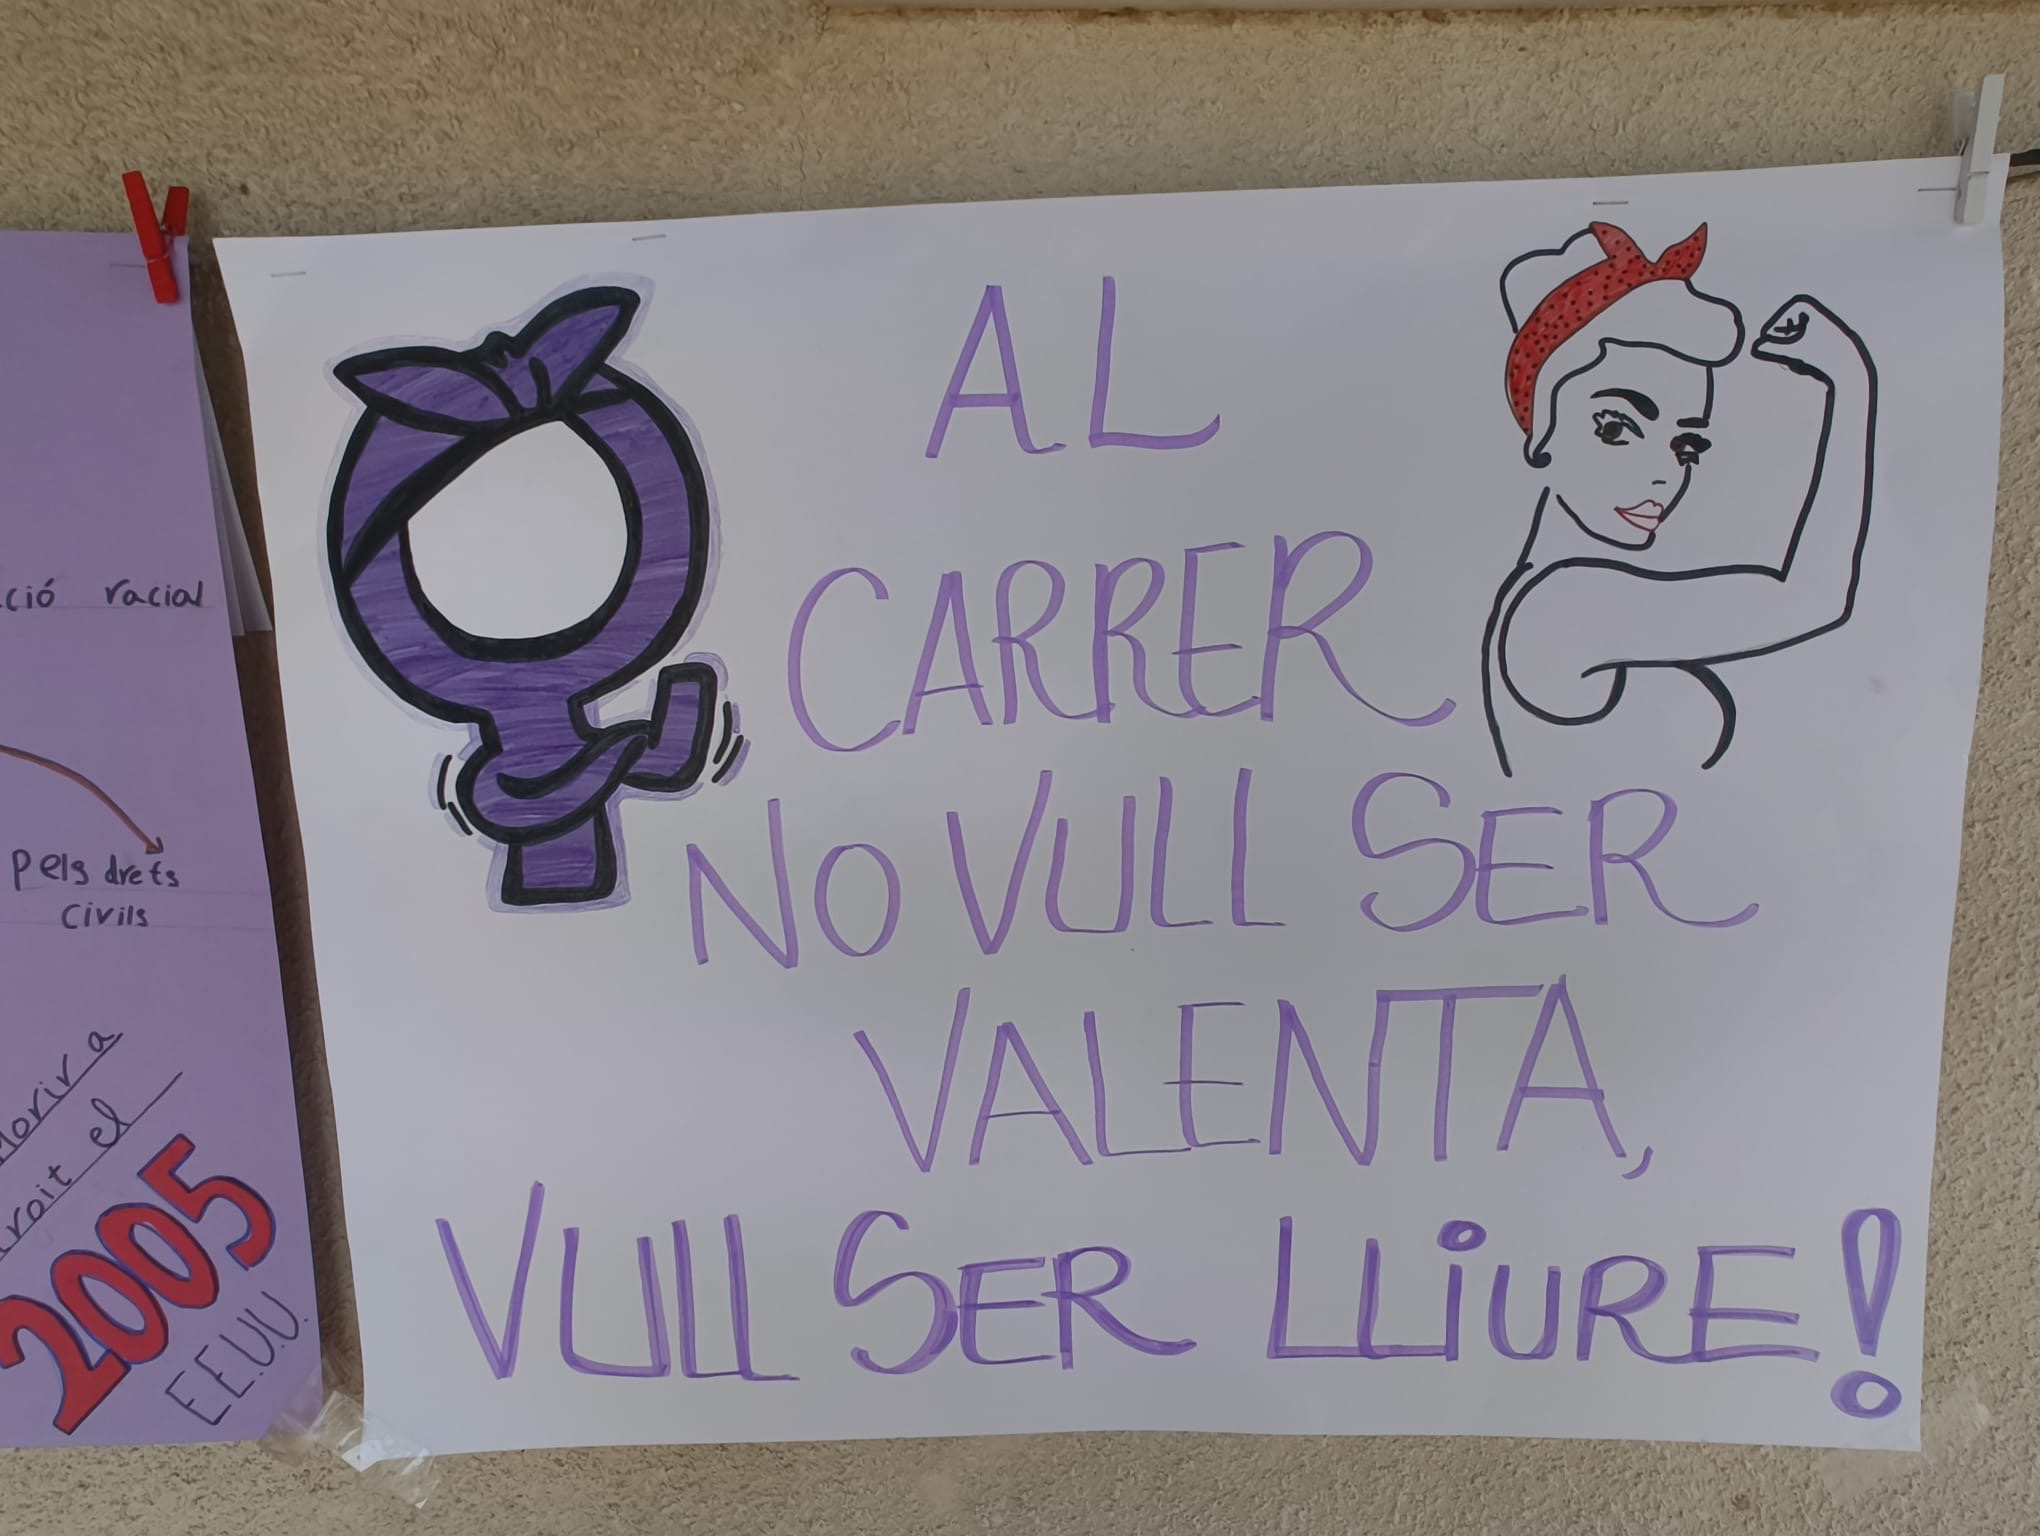 ció racial
pels drets
civils
morir a
roit el
2005
EE.UU.
AL
CARRER
NO VULL SER
VALENTA,
VULL SER LLiURE!